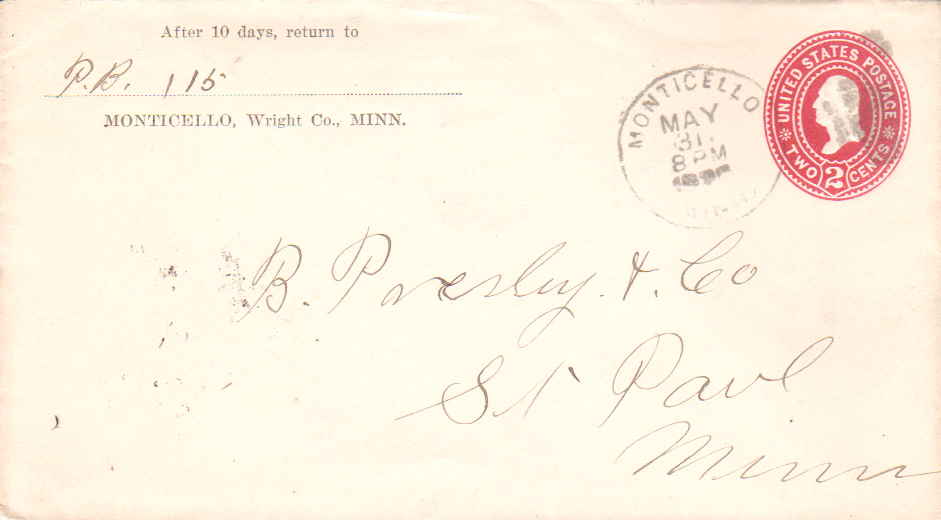 After 10 days, return to
P.B. 115
MONTICELLO, Wright Co., MINN.
MONTICELLO
MAY
31
8 PM
UNITED STATES POSTAGE
TWO 2 CENTS
B. Presley & Co
St Paul
Minn